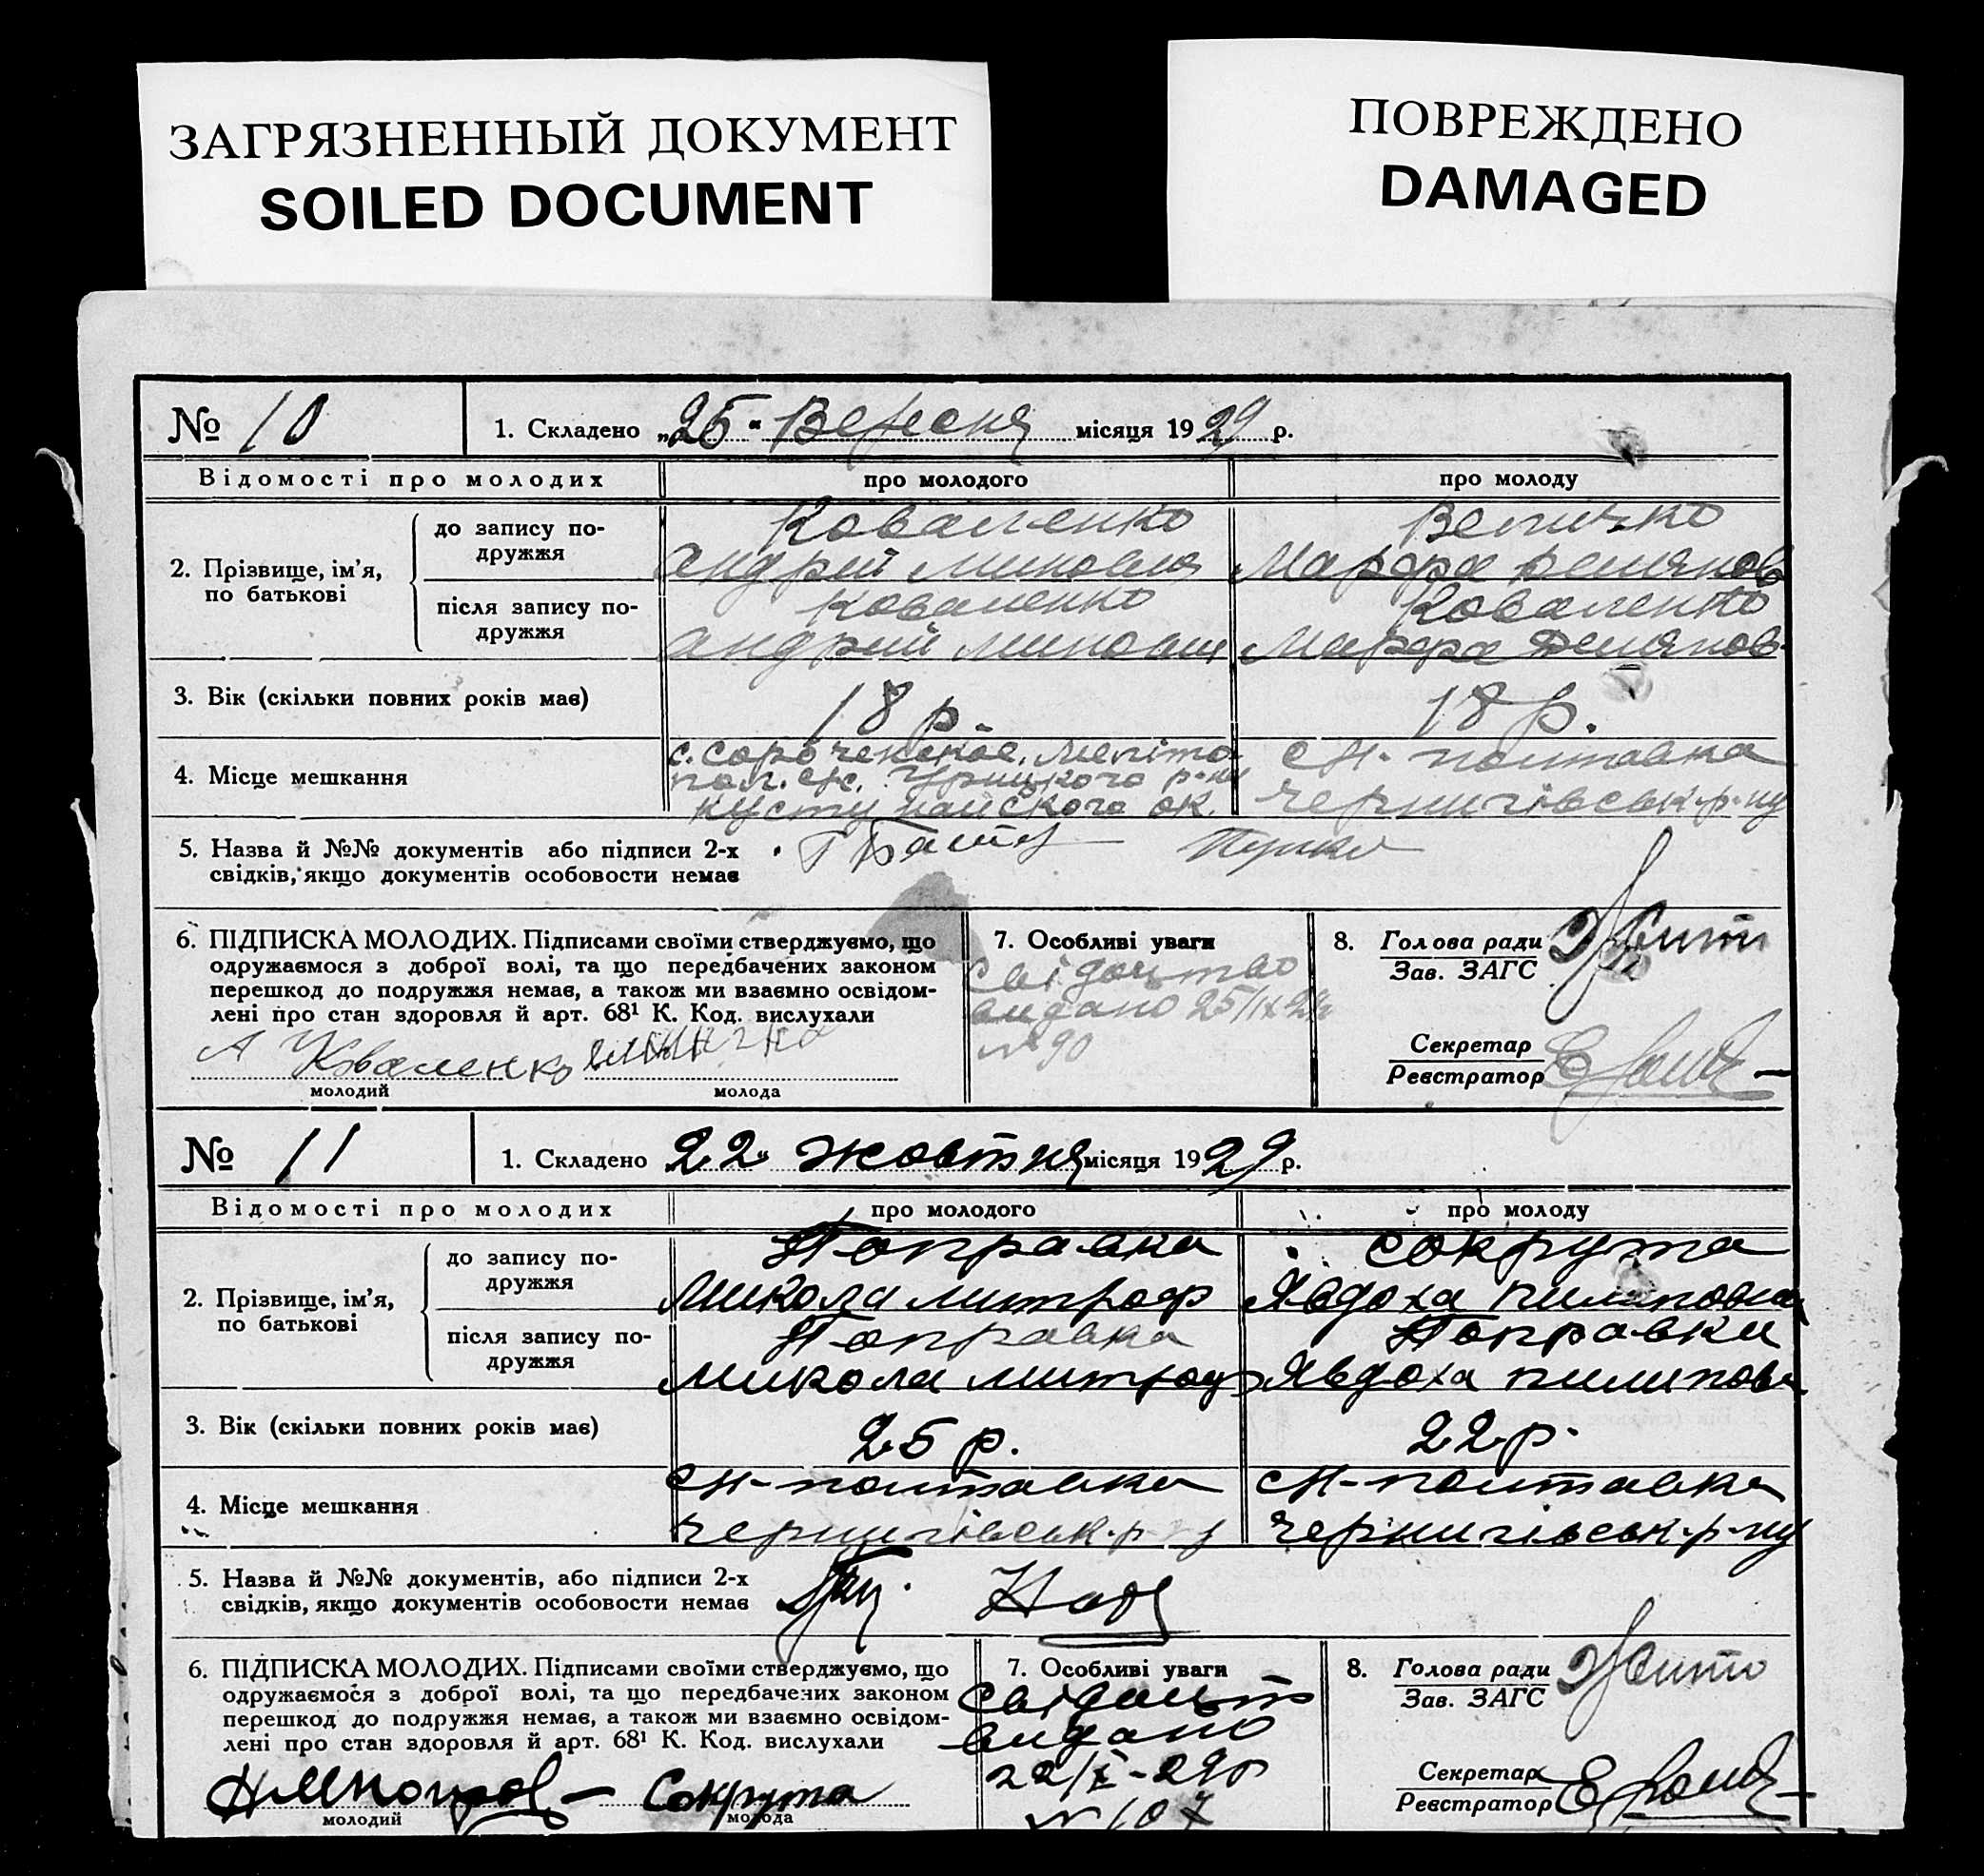 ЗАГРЯЗНЕННЫЙ ДОКУМЕНТ
SOILED DOCUMENT
ПОВРЕЖДЕНО
DAMAGED
№ 10
1. Складено „25“ Вересня місяця 1929 р.
Відомості про молодих
про молодого
про молоду
2. Прізвище, ім’я, по батькові
до запису по-
дружжя
Коваленко
Андрій
Величко
Марфа Демянов
після запису по-
дружжя
Коваленко
Андрій
Коваленко
Марфа Демянов
3. Вік (скільки повних років має)
18 р.
18 р.
4. Місце мешкання
р-ну
ок.
с Н-полтавка
чернигівськ. р-ну
5. Назва й №№ документів або підписи 2-х
свідків, якщо документів особовости немає
6. ПІДПИСКА МОЛОДИХ. Підписами своїми стверджуємо, що
одружаємося з доброї волі, та що передбачених законом
перешкод до подружжя немає, а також ми взаємно освідом-
лені про стан здоровля й арт. 68¹ К. Код. вислухали
А Коваленко
молодий
молода
7. Особливі уваги
Свідоцтво
видано 25/IX 29
№ 90
8. Голова ради
Зав. ЗАГС
Секретар
Реєстратор
№ 11
1. Складено 22“ жовтня місяця 1929 р.
Відомості про молодих
про молодого
про молоду
2. Прізвище, ім’я,
по батькові
до запису по-
дружжя
Поправка
Микола митроф
Сокрута
Явдоха пилиповна
після запису по-
дружжя
Поправка
Микола митроф
Поправка
Явдоха пилипов
3. Вік (скільки повних років має)
25 р.
22 р.
4. Місце мешкання
с Н-полтавка
чернигівськ. р
с Н-полтавка
чернигівськ. р-ну
5. Назва й №№ документів, або підписи 2-х
свідків, якщо документів особовости немає
6. ПІДПИСКА МОЛОДИХ. Підписами своїми стверджуємо, що
одружаємося з доброї волі, та що передбачених законом
перешкод до подружжя немає, а також ми взаємно освідом-
лені про стан здоровля й арт. 68¹ К. Код. вислухали
Сокрута
молодий
молода
7. Особливі уваги
Свідоцт
видано
22/X-29р
№ 107
8. Голова ради
Зав. ЗАГС
Секретар
Реєстратор